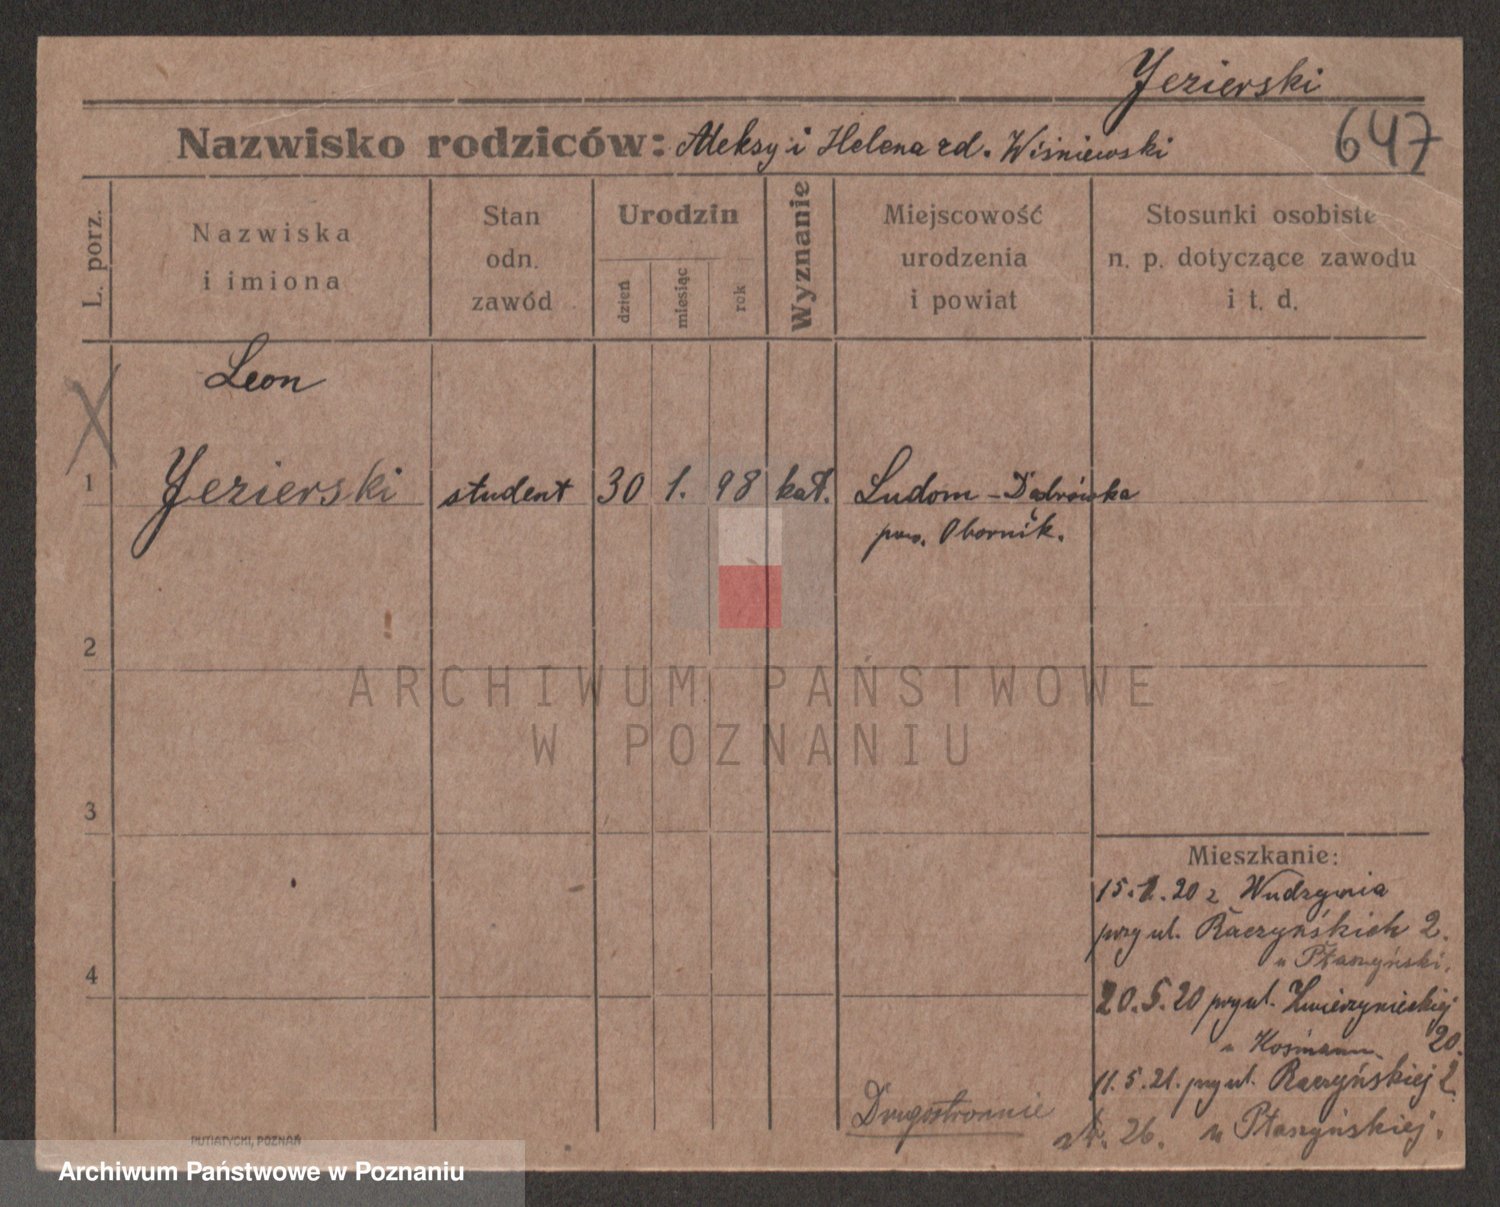 Jezierski
Nazwisko rodziców: Aleksy i Helena zd. Wiśniewski
647
L. porz.
Nazwiska
i imiona
Stan
odn.
zawód
Urodzin
dzień
miesiąc
rok
Wyznanie
Miejscowość
urodzenia
i powiat
Stosunki osobiste
n. p. dotyczące zawodu
i t. d.
Leon
1 Jezierski student 30 1. 98 kat. Ludom - Dąbrówka
pow. Obornik.
2
ARCHIWUM PAŃSTWOWE
W POZNANIU
3
Mieszkanie:
15.1.20 z Wudzynia
przy ul. Raczyńskich 2.
u Ptaszyński.
4
20.5.20 przy ul. Zwierzynieckiej
20.
u Kosmann.
11.5.21. przy ul. Raczyńskiej 2.
Drugostronnie
26. u Ptaszyńskiej.
PUTIATYCKI, POZNAŃ
Archiwum Państwowe w Poznaniu